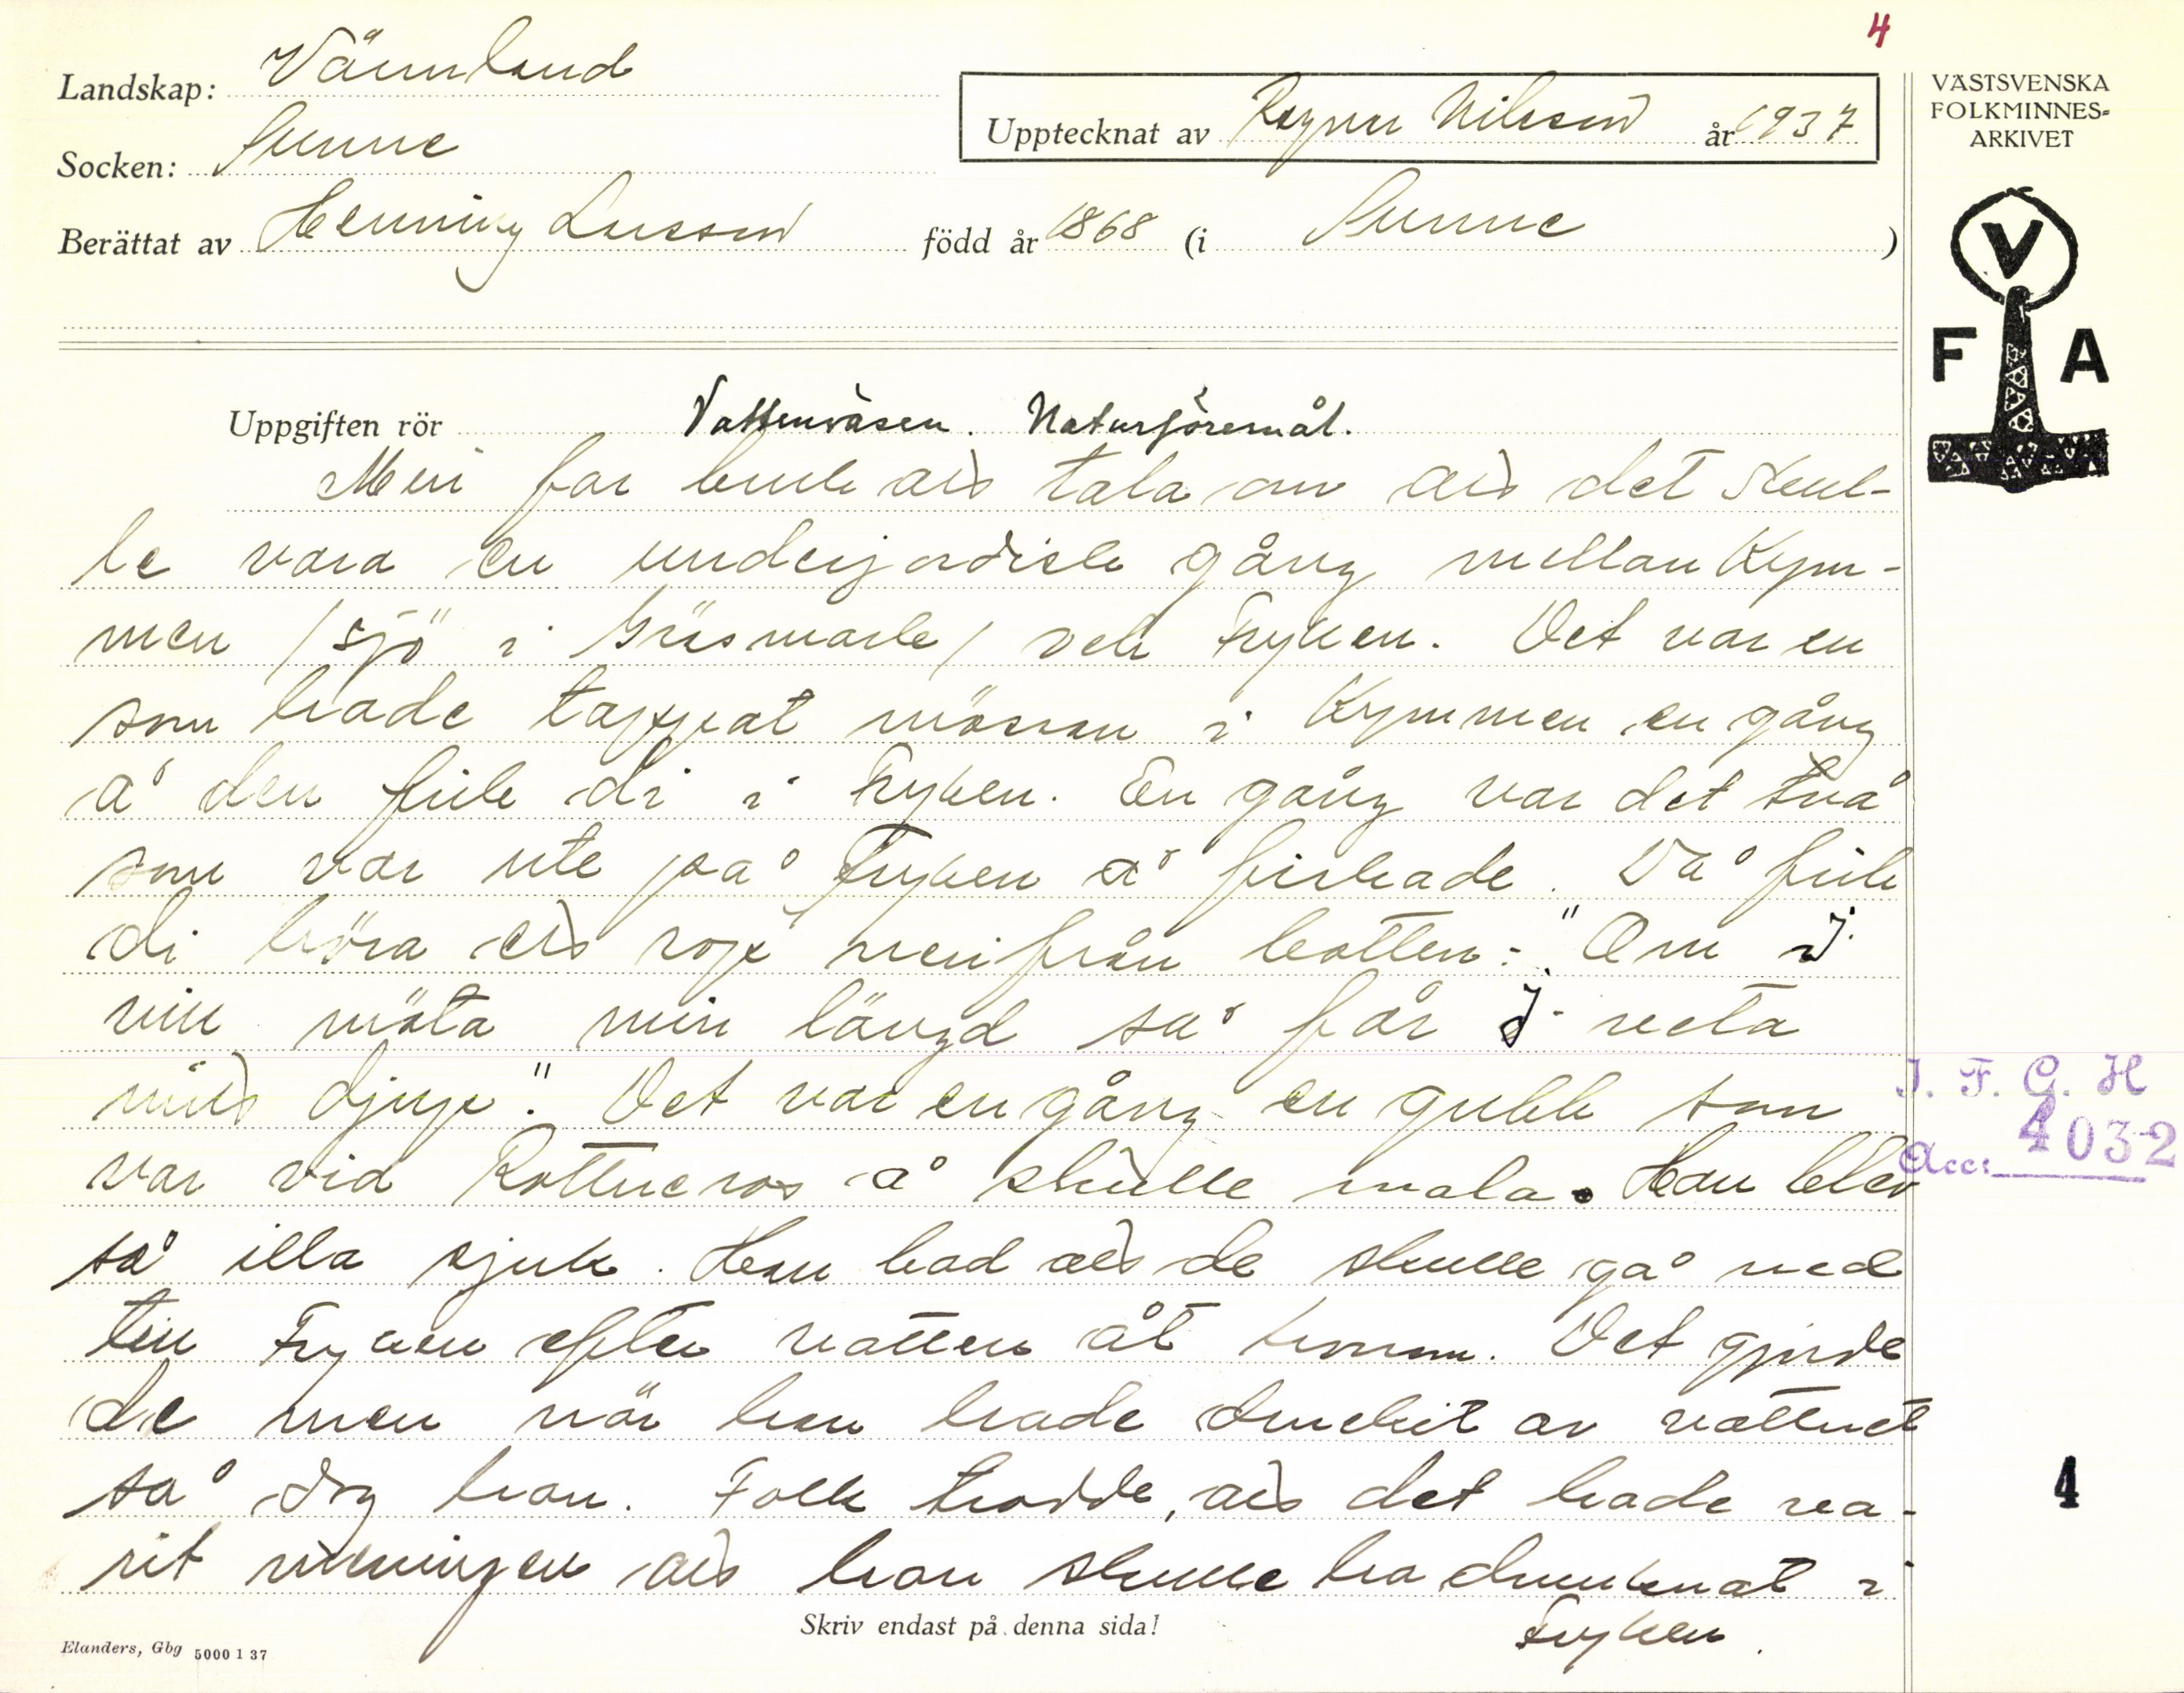 4
Landskap: Värmland
VÄSTSVENSKA
FOLKMINNES-
ARKIVET
Upptecknat av Ragnar Nilsson år 1937
Socken: Sunne
Berättat av Henning Larsson född år 1868 (i Sunne )
V
F A
Uppgiften rör Vattenväsen. Naturföremål.
Min far bruk att tala om att det skul-
le vara en underjordisk gång mellan Kym-
men / sjö i Gräsmark / och Fryken. Det var en
som hade tappat mössan i Kymmen en gång
å den fick di i Fryken. En gång var det två
som var ute på Fryken å fiskade. Då fick
di höra ett rop nerifrån botten: "Om I
vill mäta min längd så får I veta
mitt djup." Det var en gång en gubbe som
var vid Rottneros å skulle mala. Han blev
så illa sjuk. Han bad att de skulle gå ned
till Fryken efter vatten åt honom. Det gjorde
de men när han hade druckit av vattnet
så dog han. Folk trodde, att det hade va-
rit meningen att han skulle ha drunknat i
Fryken.
I. F. G. H
Acc: 4032
4
Skriv endast på denna sida!
Elanders, Gbg 5000 1 37